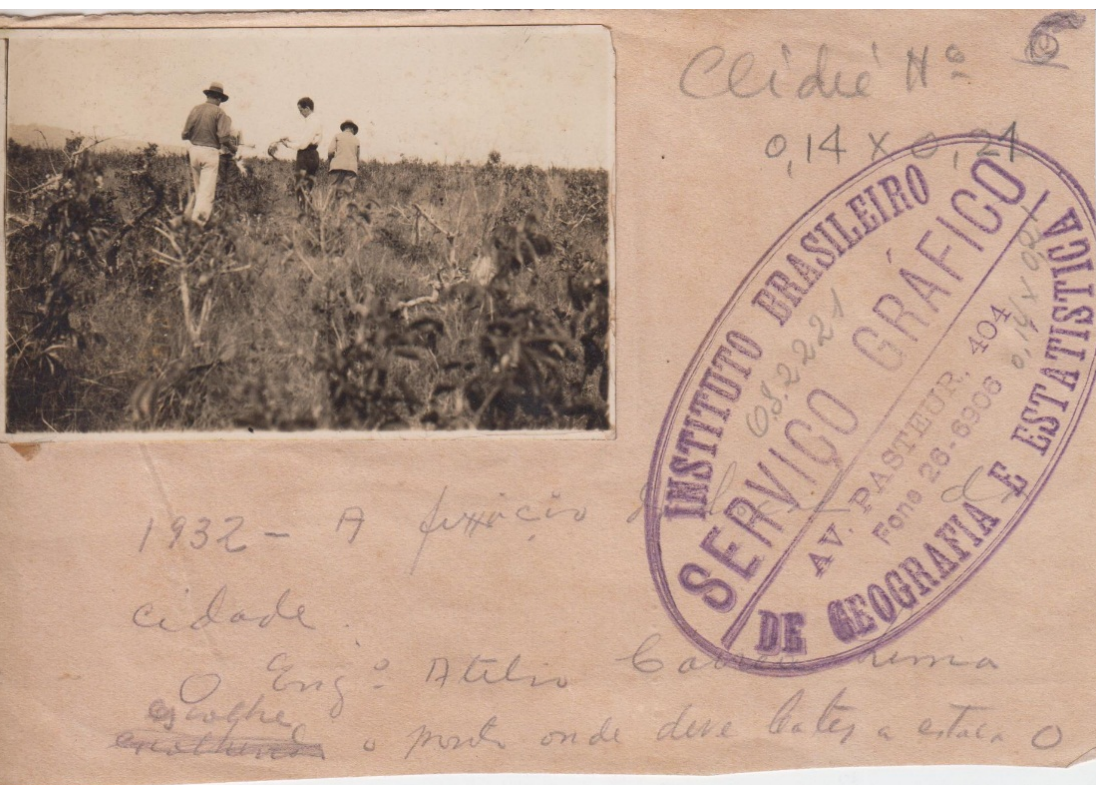 Clichê Nº 10
0,14 x 0,21
INSTITUTO BRASILEIRO
DE GEOGRAFIA E ESTATISTICA
SERVIÇO GRÁFICO
03.2221
AV. PASTEUR, 404
Fone 26-6906
1932 - A fixação do local da
cidade.
O Engº Atilio Correa Lima
escolhe
o ponto onde deve bater a estaca O